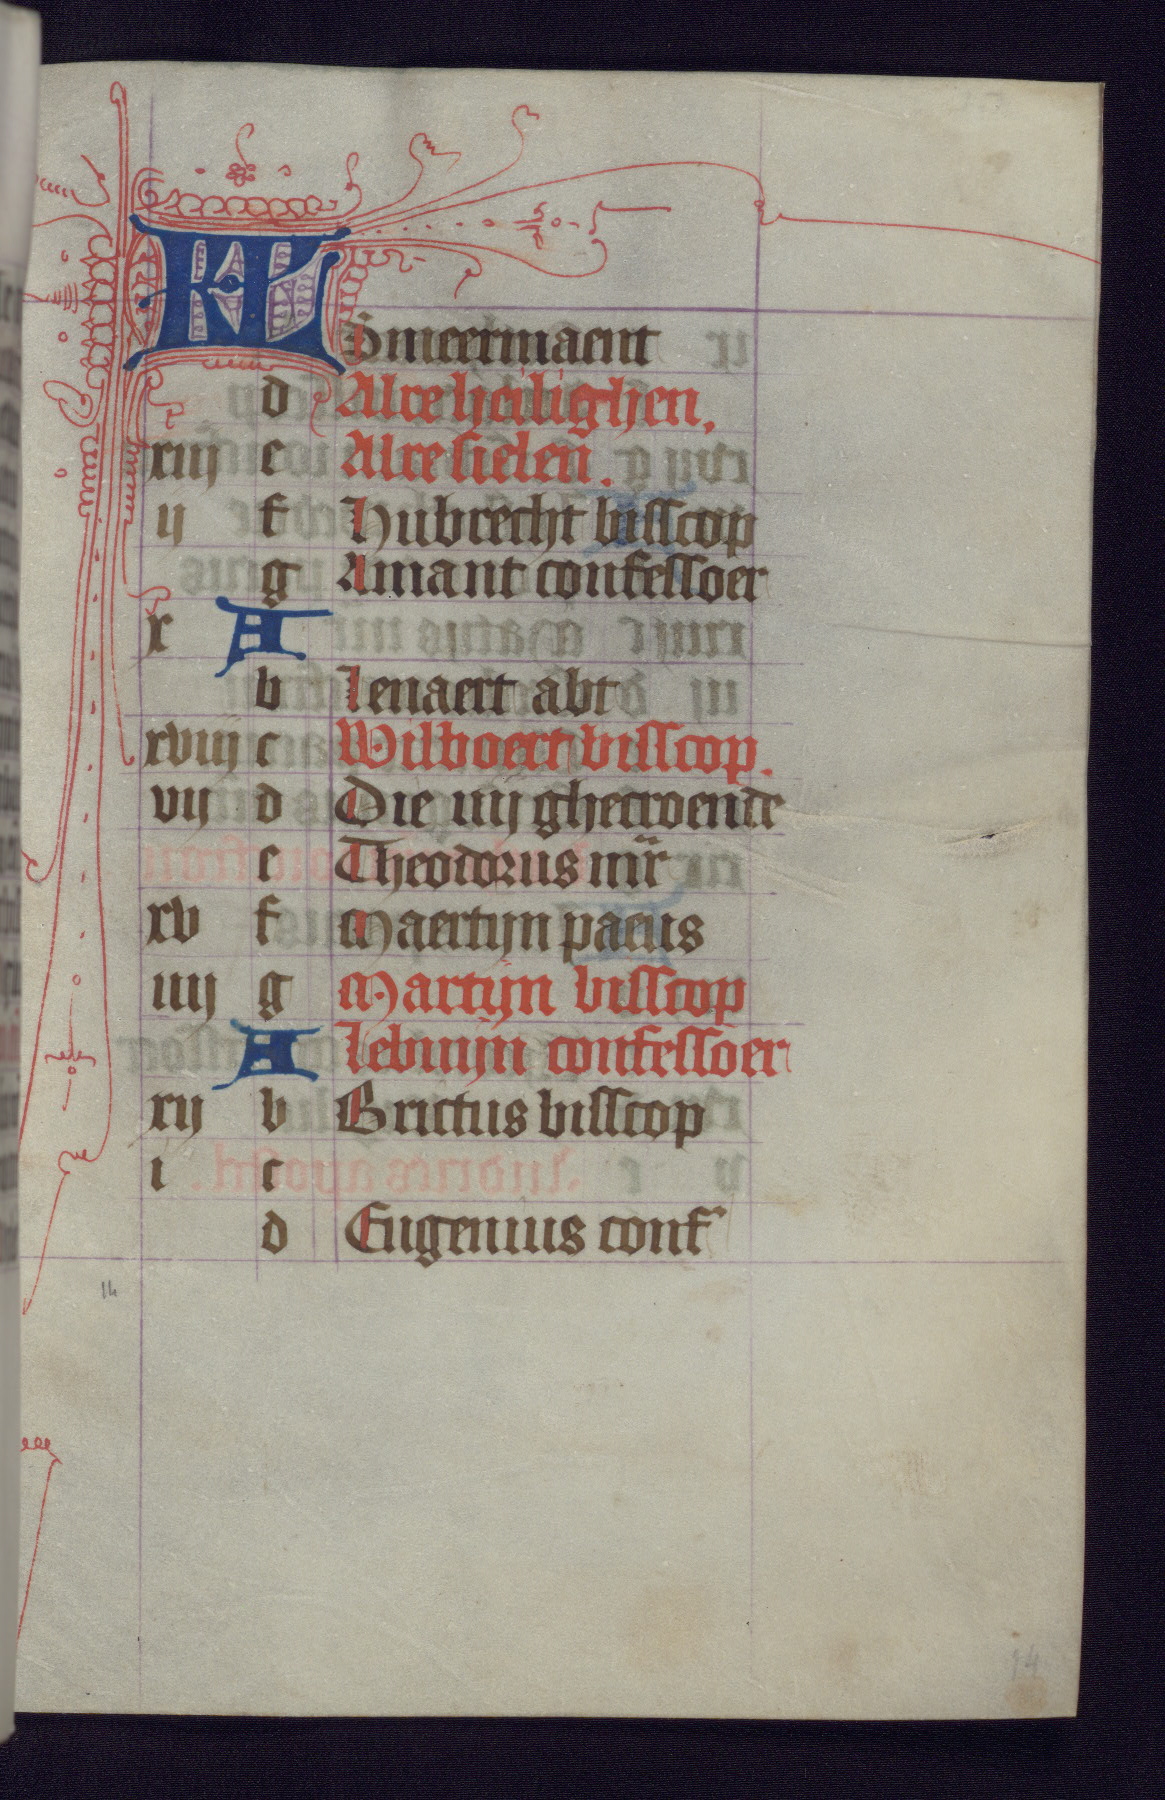 KL Smeermaent
d Alre heilighen.
xiiij e Alre sielen.
ij f Hubrecht bisscop
g Amant confessoer
x A
b Lenaert abt
xviij c Wilboert bisscop.
vij d Die iiij ghecroende
e Theodorus mr̄
xv f Maertijn paeus
iiij g Martijn bisscop
A Lebuijn confessoer
xij b Brictius bisscop
i c
d Eugenius conf'
14
14